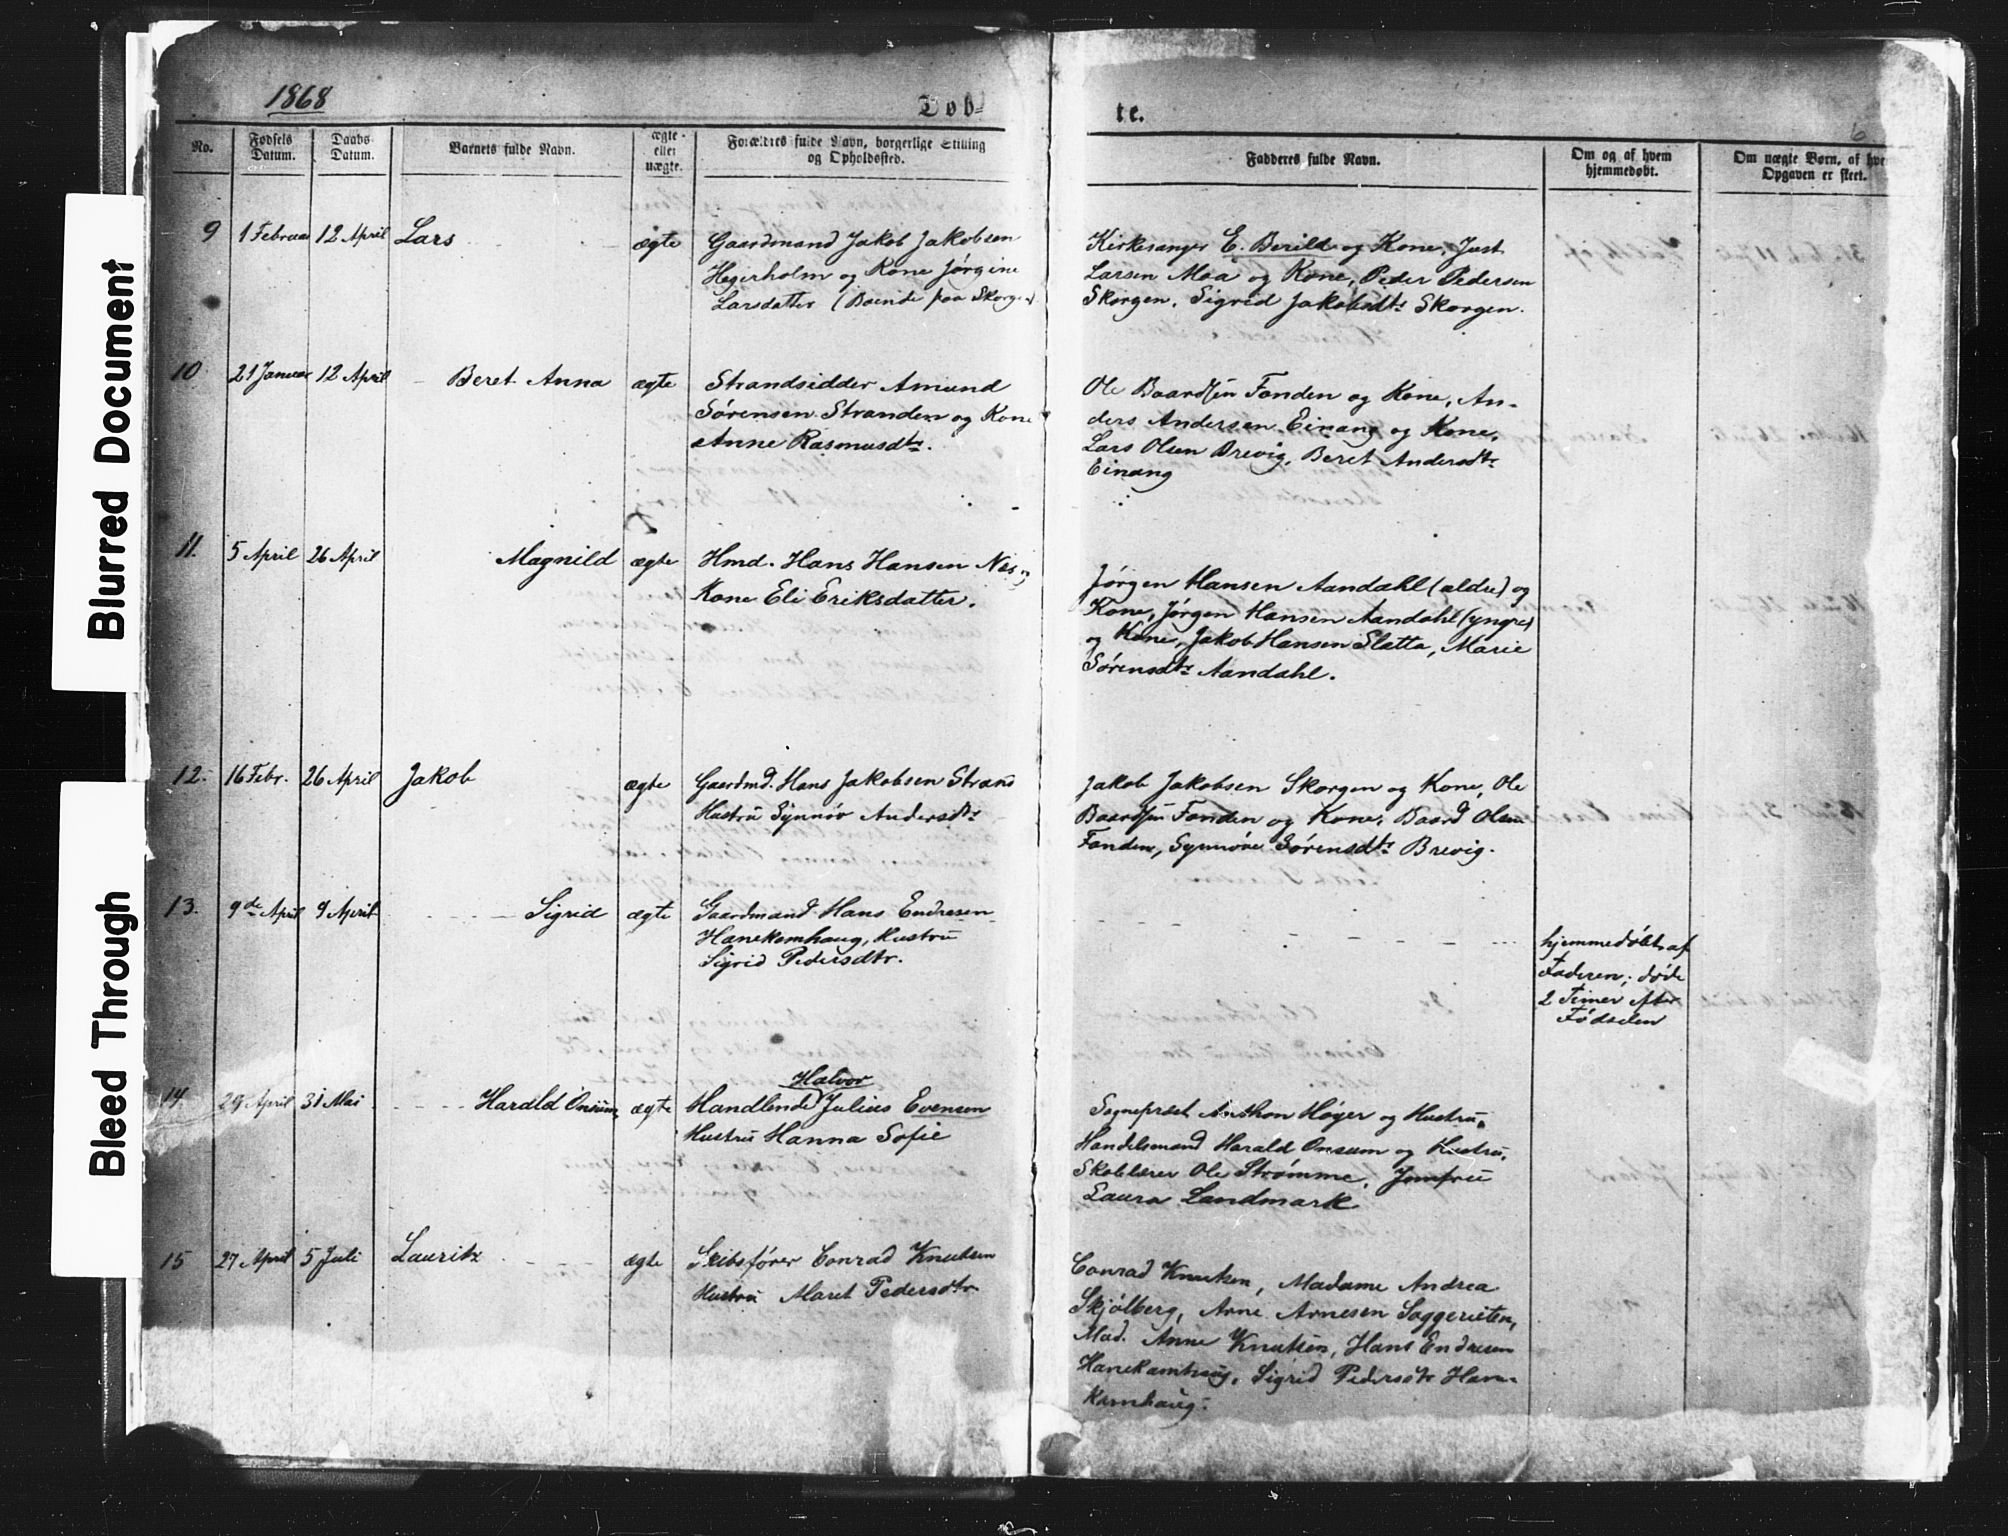 Blurred Document
Bleed Through
1868
Døb-
te.
6
No.
Fødsels Datum.
Daabs Datum.
Barnets fulde Navn.
ægte eller uægte.
Forældres fulde Navn, borgerlige Stilling og Opholdssted.
Fadderes fulde Navn.
Om og af hvem hjemmedøbt.
Om uægte Børn, af hvem Opgaven er skeet.
9 1 Februar 12 April Lars ægte Gaardmand Jakob Jakobsen
Hegerholm og Kone Jørgine
Larsdatter (Boende paa Skorgen)
Kirkesanger E. Berild og Kone, Just
Larsen Moa og Kone, Peder Pedersen
Skorgen, Sigrid Jakobsdtr Skorgen.
10 21 Januar 12 April Beret Anna ægte Strandsidder Amund
Sørensen Stranden og Kone
Anne Rasmusdtr.
Ole Baardsen Fonden og Kone, An-
ders Andersen Einang og Kone,
Lars Olsen Brevig, Beret Andersdtr
Einang
11. 5 April 26 April Magnild ægte Hmd. Hans Hansen Næs og
Kone Eli Eriksdatter.
Jørgen Hansen Aandahl (ældre) og
Kone, Jørgen Hansen Aandahl (yngre)
og Kone, Jakob Hansen Slatta, Marie
Sørensdtr Aandahl.
12. 16 Febr. 26 April Jakob ægte Gaardmd. Hans Jakobsen Strand
Hustru Synnøv Andersdtr
Jakob Jakobsen Skorgen og Kone, Ole
Baardsen Fonden og Kone, Baard Olsen
Fonden, Synnøve Sørensdtr Brevig.
13. 9de April 9 April Sigrid ægte Gaardmand Hans Endresen
Hanekamhaug, Hustru
Sigrid Pedersdtr.
hjemmedøbt af
Faderen; døde
2 Timer efter
Fødselen
14. 29 April 31 Mai Harald Onsum ægte Handlende Halvor Julius Evensen
Hustru Hanna Sofie
Sognepræst Anthon Høyer og Hustru,
Handelsmand Harald Onsum og Hustru,
Skolelærer Ole Strømme, Jomfru
Laura Landmark
15 27 April 5 Juli Lauritz ægte Skibsfører Conrad Knutsen
Hustru Maret Pedersdtr
Conrad Knutsen, Madame Andrea
Skjølberg, Arne Arnesen Soggerieten,
Mad. Anne Knutsen, Hans Endresen
Hanekamhaug, Sigrid Pedersdtr Hane-
kamhaug.